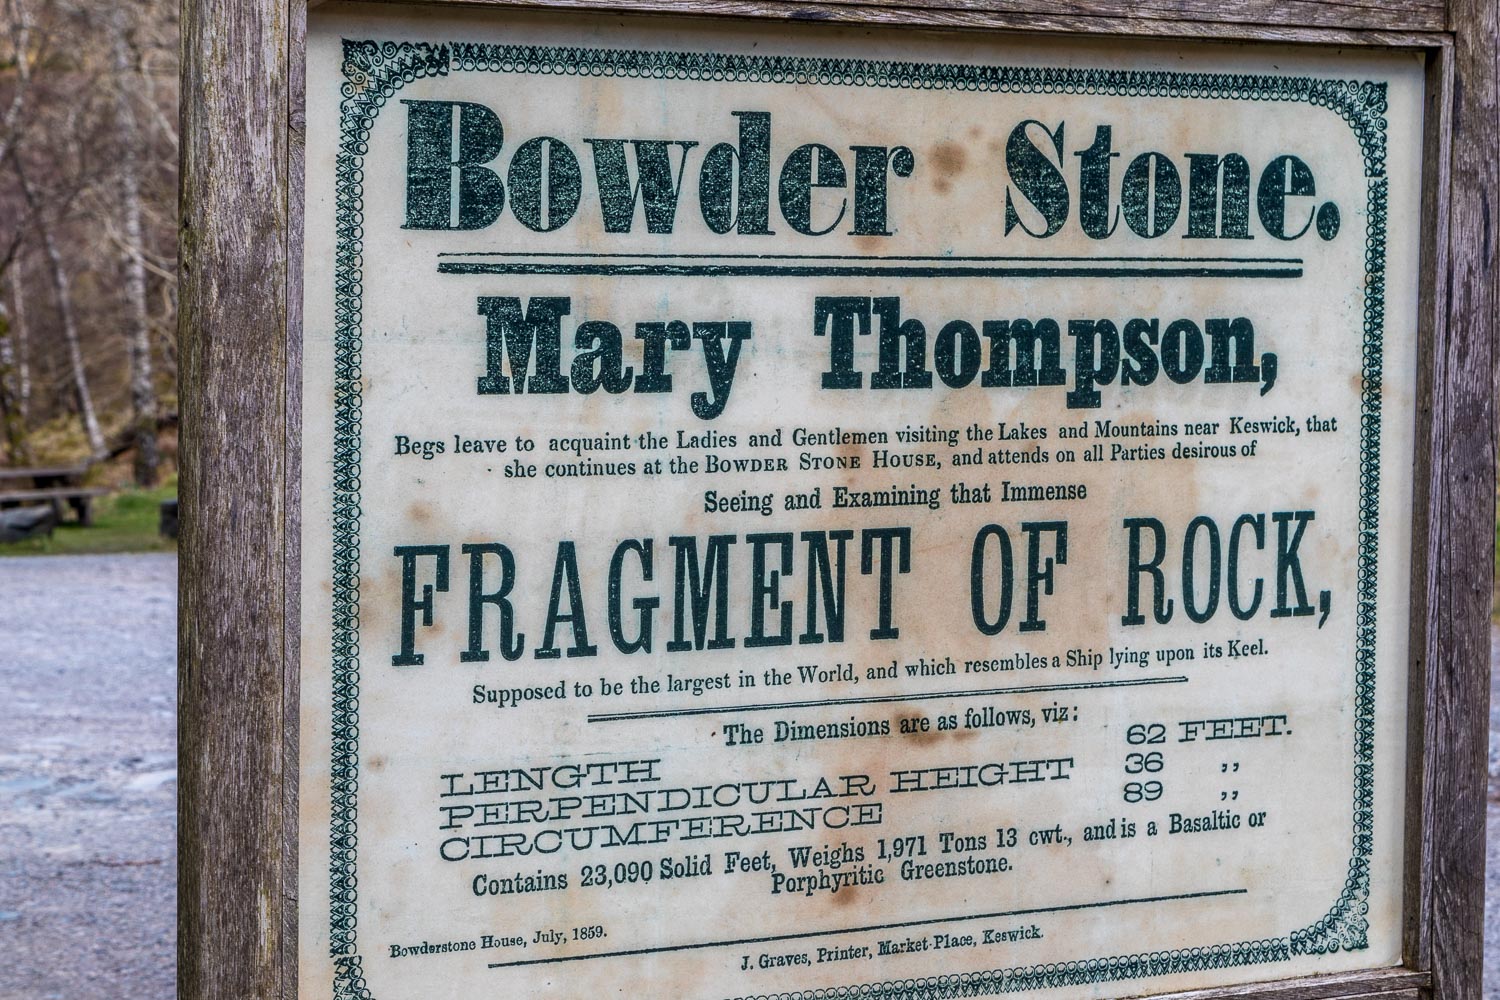 Bowder Stone.
Mary Thompson,
Begs leave to acquaint the Ladies and Gentlemen visiting the Lakes and Mountains near Keswick, that
she continues at the BOWDER STONE HOUSE, and attends on all Parties desirous of
Seeing and Examining that Immense
FRAGMENT OF ROCK,
Supposed to be the largest in the World, and which resembles a Ship lying upon its Keel.
The Dimensions are as follows, viz:
LENGTH 62 FEET.
PERPENDICULAR HEIGHT 36 ,,
CIRCUMFERENCE 89 ,,
Contains 23,090 Solid Feet, Weighs 1,971 Tons 13 cwt., and is a Basaltic or
Porphyritic Greenstone.
Bowderstone House, July, 1859.
J. Graves, Printer, Market-Place, Keswick.